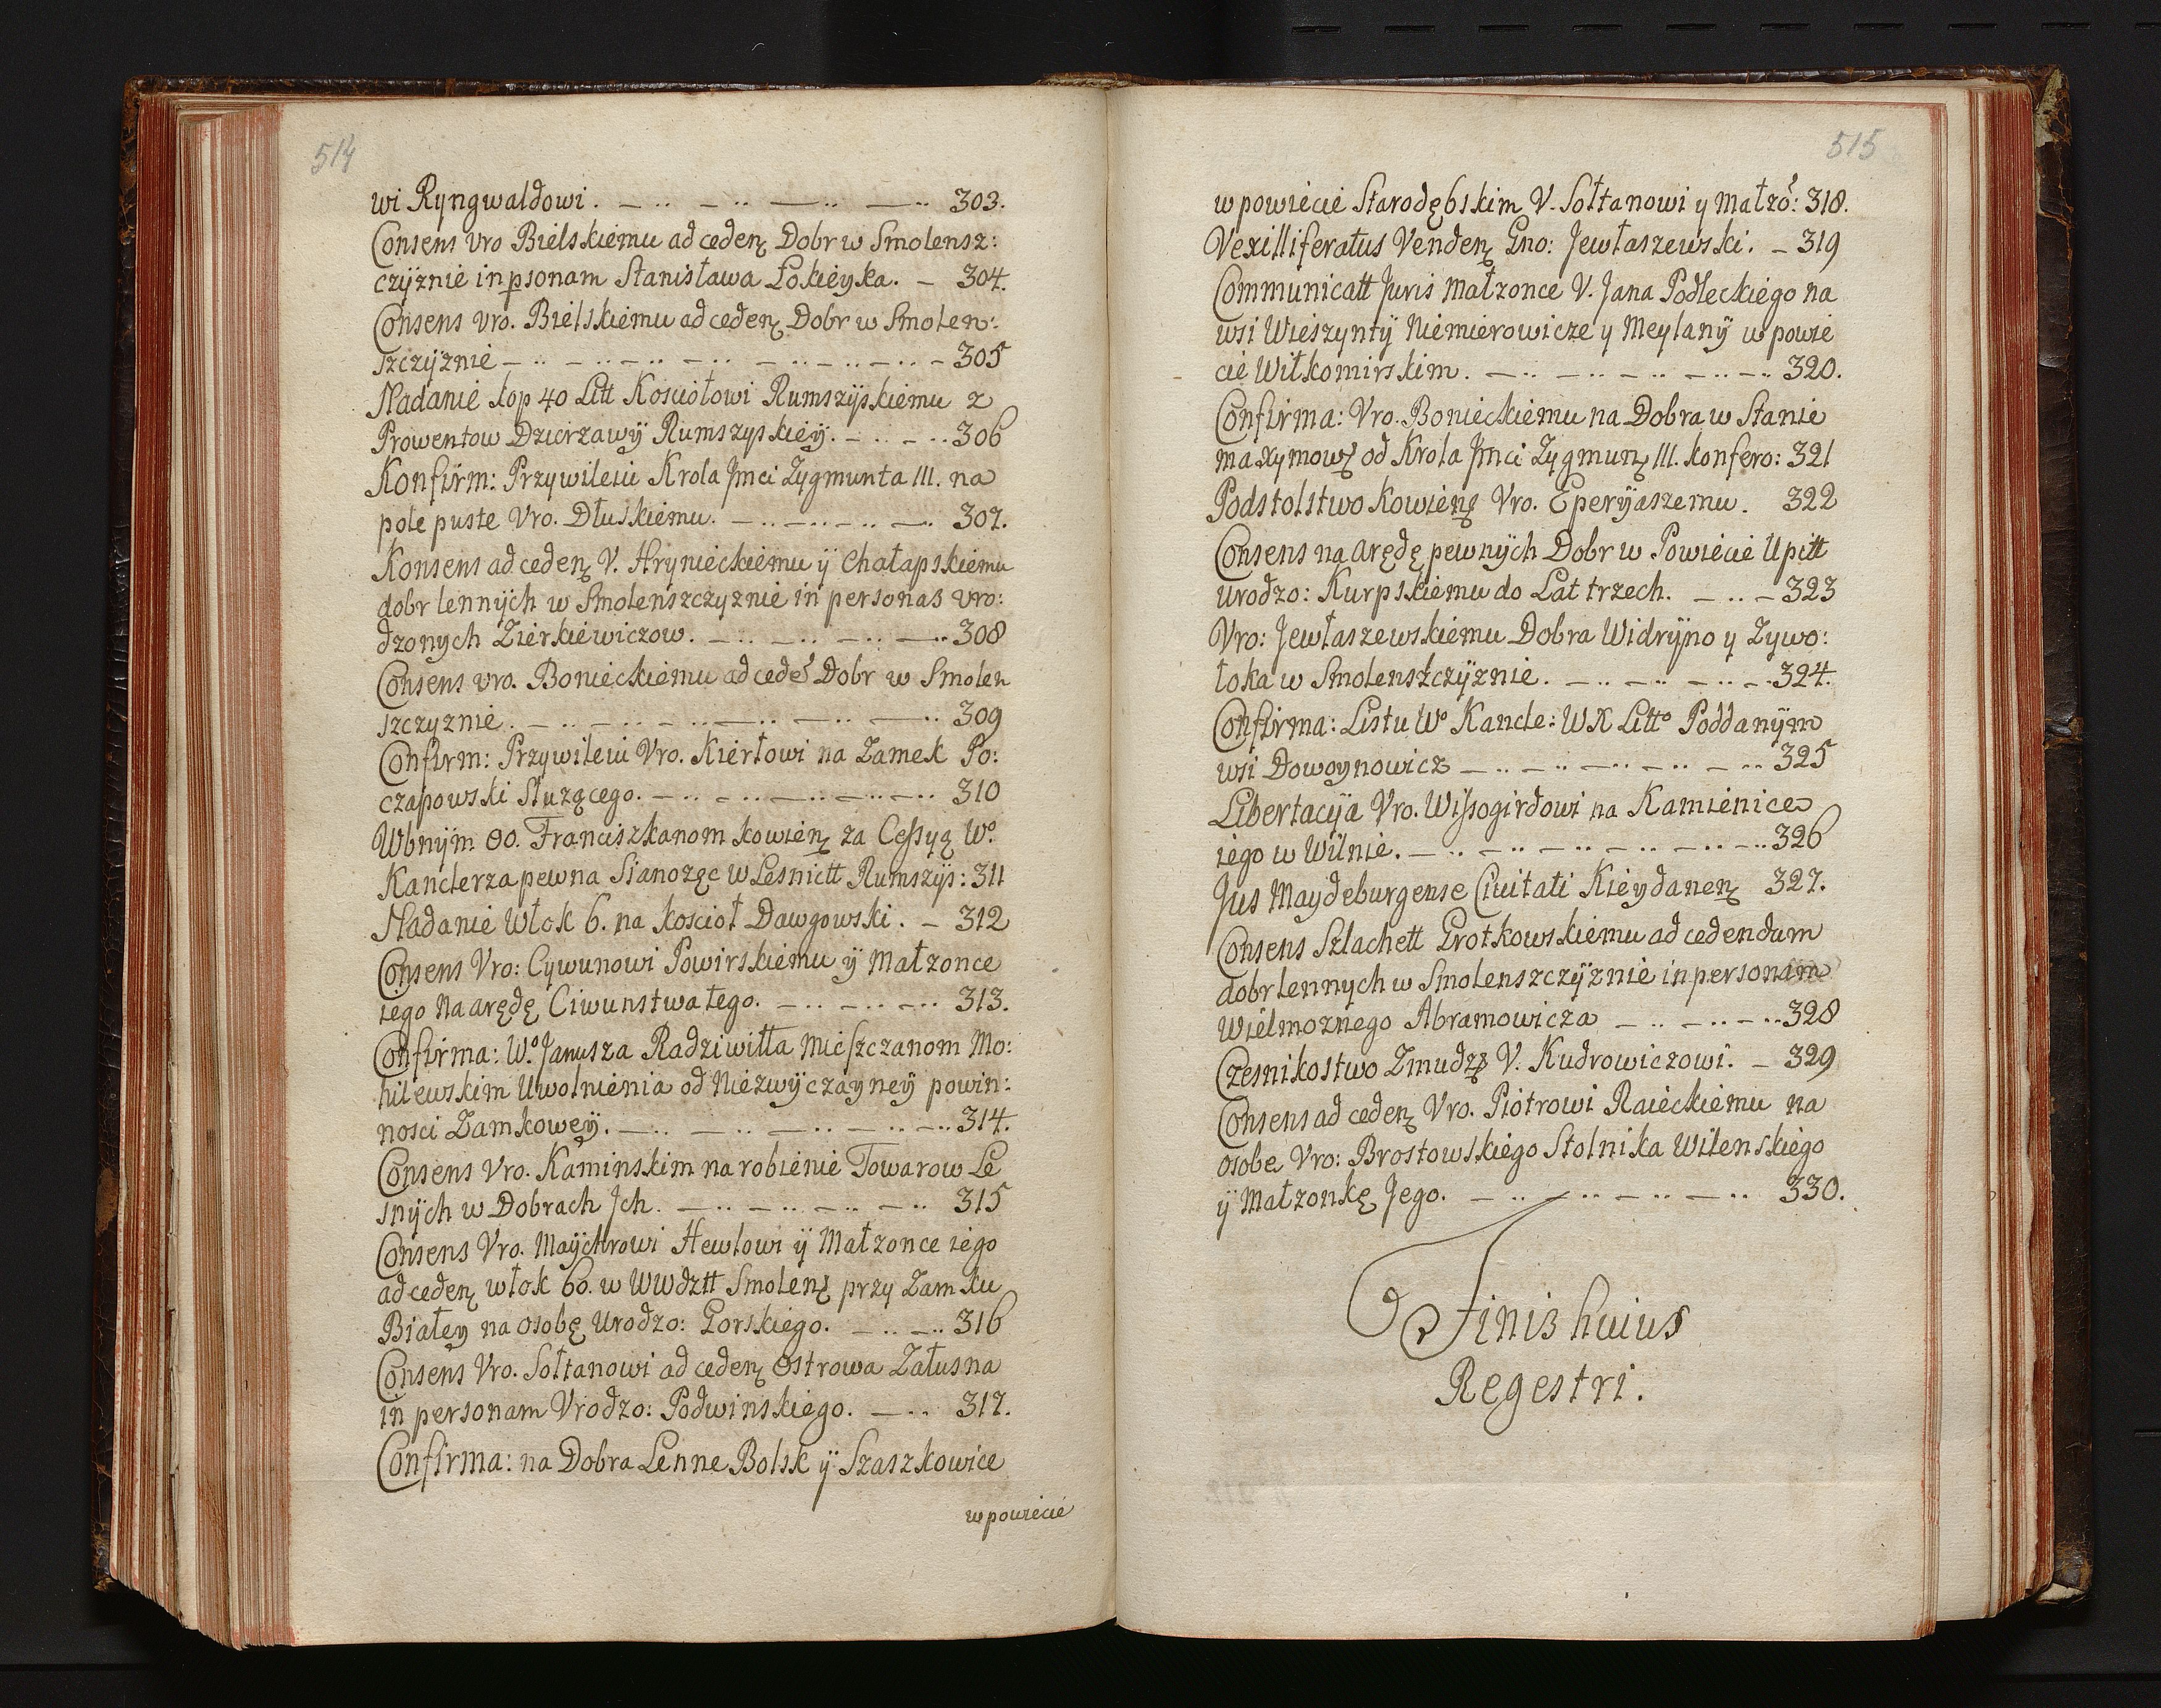 514
wi Ryngwaldowi. – .. – .. – .. – .. 303.
Consens vro Bielskiemu ad ceden Dobr w Smolensz:
czÿznie in psonam Stanisława Łokieyka. – 304.
Consens vro. Bielskiemu ad ceden Dobr w Smolen:
szczÿznie – .. – .. – .. – .. – .. – .. – .. – 305
Nadanie kop 40 Litt Kosciołowi Rumszÿskiemu z
Prowentow Dzierzawÿ Rumszyskieÿ. – .. – .. 306
Konfirm: Przywileiu Krola Jmci Zygmunta III. na
pole puste Vro. Dłuskiemu. – .. – .. – .. – .. 307.
Konsens ad ceden V. Hrynieckiemu ÿ Chałapskiemu
dobr lennÿch w Smolenszczyznie in personas vro:
dzonych Zierkiewiczow. – .. – .. – .. – .. 308
Consens vro. Bonieckiemu ad cede Dobr w Smolen
szczyznie. – .. – .. – .. – .. – .. – .. 309
Confirm: Przywileiu Vro. Kierłowi na Zamek Po:
czapowski Służącego. – .. – .. – .. – .. – .. 310
Wbnÿm OO. Franciszkanom kowien za Cessyą Wo.
Kanclerza pewna Sianozęc w Lesnictt Rumszÿs: 311
Nadanie Włok 6. na kosciół Dawgowski. – 312
Consens Vro: Cywunowi Powirskiemu ÿ Małzonce
iego na arędę Ciwunstwa tego. – .. – .. – .. 313.
Confirma: Wo Janusza Radziwiłła mieszczanom Mo:
hilewskim Uwolnienia od Niezwÿczayneÿ powin:
nosci Zamkoweÿ. – .. – .. – .. – .. – .. 314.
Consens Vro. Kaminskim na robienie Towarow Le
snÿch w Dobrach Jch. – .. – .. – .. – .. 315
Consens Vro. Maÿchrowi Hewlowi ÿ Małzonce iego
ad ceden włok 60. w Wwdztt Smolen przy Zamku
Białey na osobę Urodzo: Gorskiego. – .. – .. 316
Consens Vro. Sołtanowi ad ceden Ostrowa Załusna
in personam Vrodzo: Podwinskiego. – .. 317.
Confirma: na Dobra Lenne Bolsk ÿ Szaszkowice
w powiecie
515
w powiecie Starodębskim V. Sołtanowi y Małzo: 318.
Vexilliferatus Venden Gno: Jewłaszewski. – 319
Communicatt Juris Małzonce V. Jana Podleckiego na
wsi Wieszyntÿ Niemierowicze y Meylanÿ w powie
cie Wiłkomirskim. – .. – .. – .. – .. – .. 320.
Confirma: Vro. Bonieckiemu na Dobra w Stanie
maxymow od Krola Jmci Zygmun III. konfero: 321
Podstolstwo Kowien Vro. Eperÿaszemu. 322
Consens na arędę pewnÿch Dobr w Powiecie Upitt
urodzo: Kurpskiemu do Lat trzech. – .. – 323
Vro: Jewłaszewskiemu Dobra Widrÿno y Zywo:
łoka w Smolenszczÿznie. – .. – .. – .. – .. 324.
Confirma: Listu Wo Kancle: WX Litto Poddanÿm
wsi Dowoynowicz – .. – .. – .. – .. – .. 325
Libertacÿa Vro. Wissogirdowi na Kamienice
iego w Wilnie. – .. – .. – .. – .. – .. – .. 326
Jus Maydeburgense Civitati Kieydanen 327.
Consens Szlachett Grotkowskiemu ad cedendum
dobr lennych w Smolenszczÿznie in personam
Wielmoznego Abramowicza – .. – .. – .. 328
Czesnikostwo Zmudz V. Kudrowiczowi. – 329
Consens ad ceden Vro. Piotrowi Raieckiemu na
osobe Vro: Brostowskiego Stolnika Wilenskiego
ÿ Małzonkę Jego. – .. – .. – .. – .. 330.
Finis huius
Regestri.